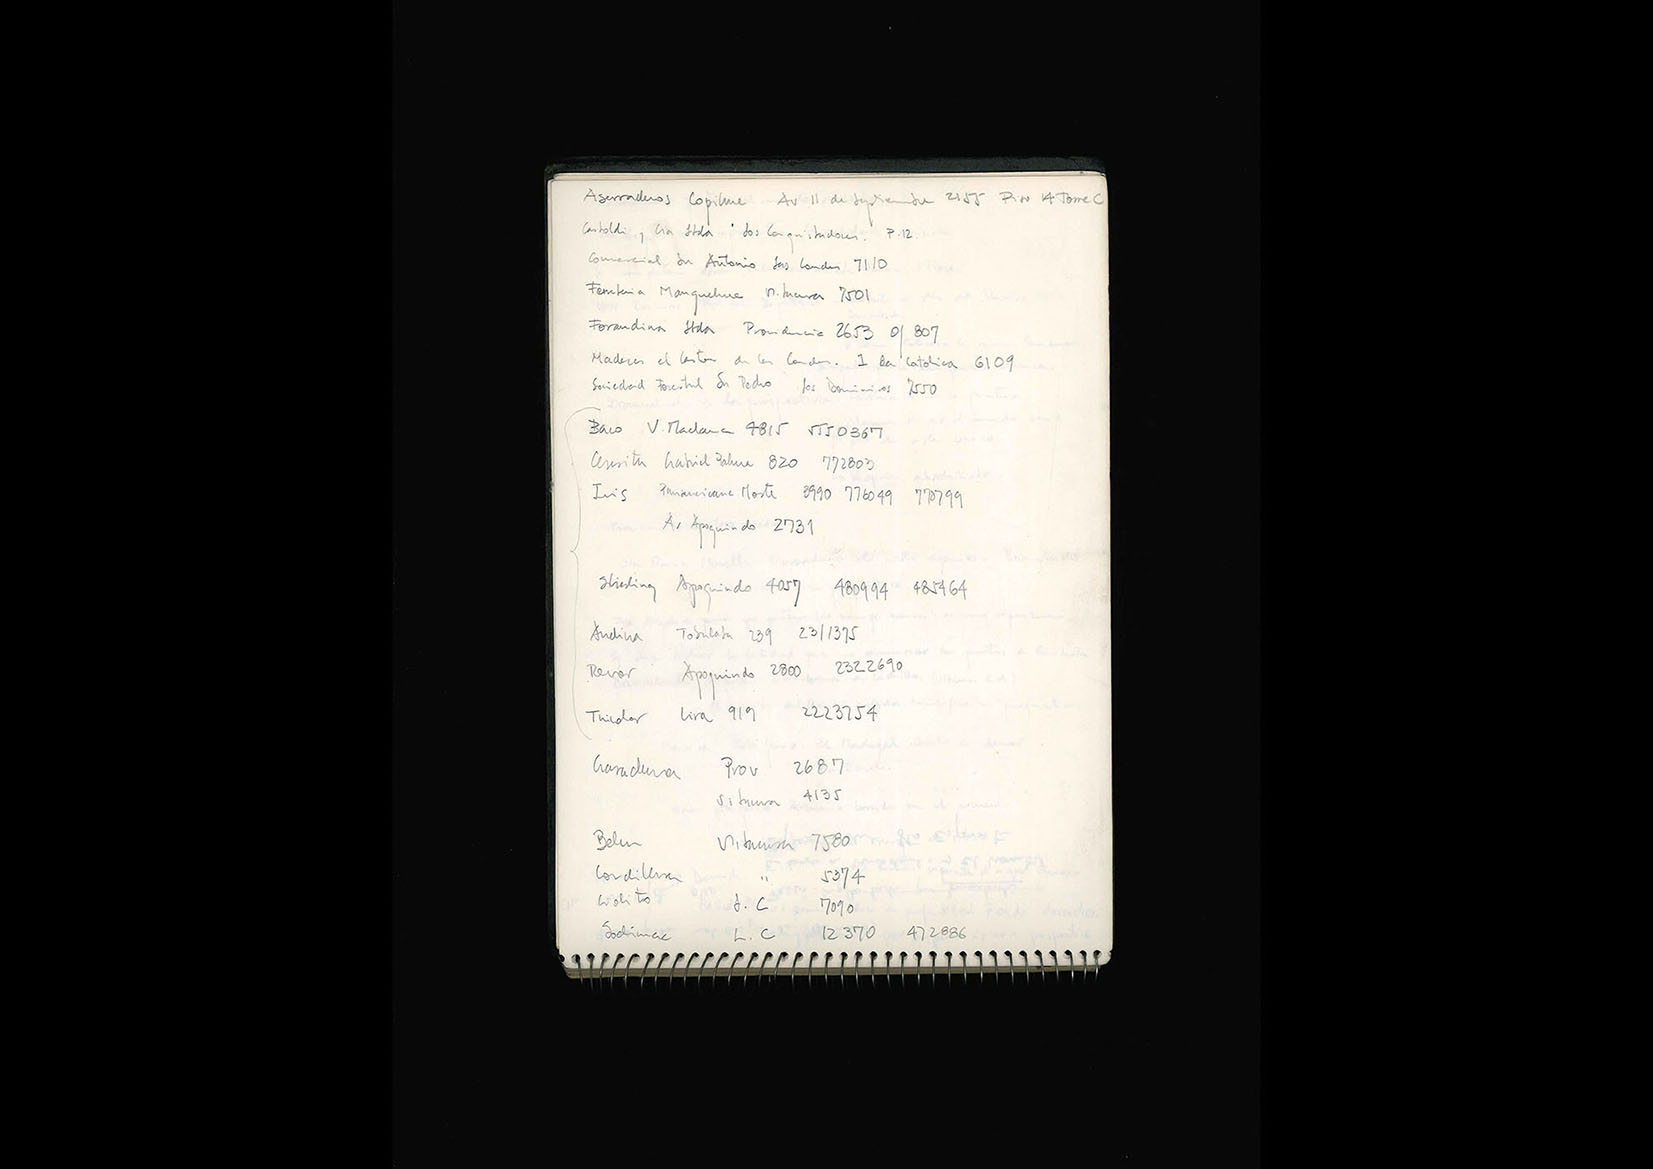 Aserraderos Copihue Av 11 de Septiembre 2155 Piso 14 Torre C
Castoldi y Cia Ltda Los Conquistadores. P.12.
Comercial Sn Antonio Las Condes 7110
Ferreteria Manquehue Vitacura 7501
Forandina Ltda Providencia 2653 of 807
Maderas el Castor de las Condes. I La Católica 6109
Sociedad Forestal Sn Pedro Los Dominicos 7550
Baco V. Mackenna 4815 5550367
Ceresita Gabriel Palma 820 772803
Iris Panamericana Norte 3990 776049 770799
Av Apoquindo 2731
Apoquindo 4057 480994 485464
Andina Tobalaba 239 2311375
Revor Apoquindo 2800 2322690
Tricolor Lira 919 2223754
Prov 2687
Vitacura 4135
Belen Vitacura 7580
Cordillera " 5374
L. C 7090
Sodimac L. C 12370 472886